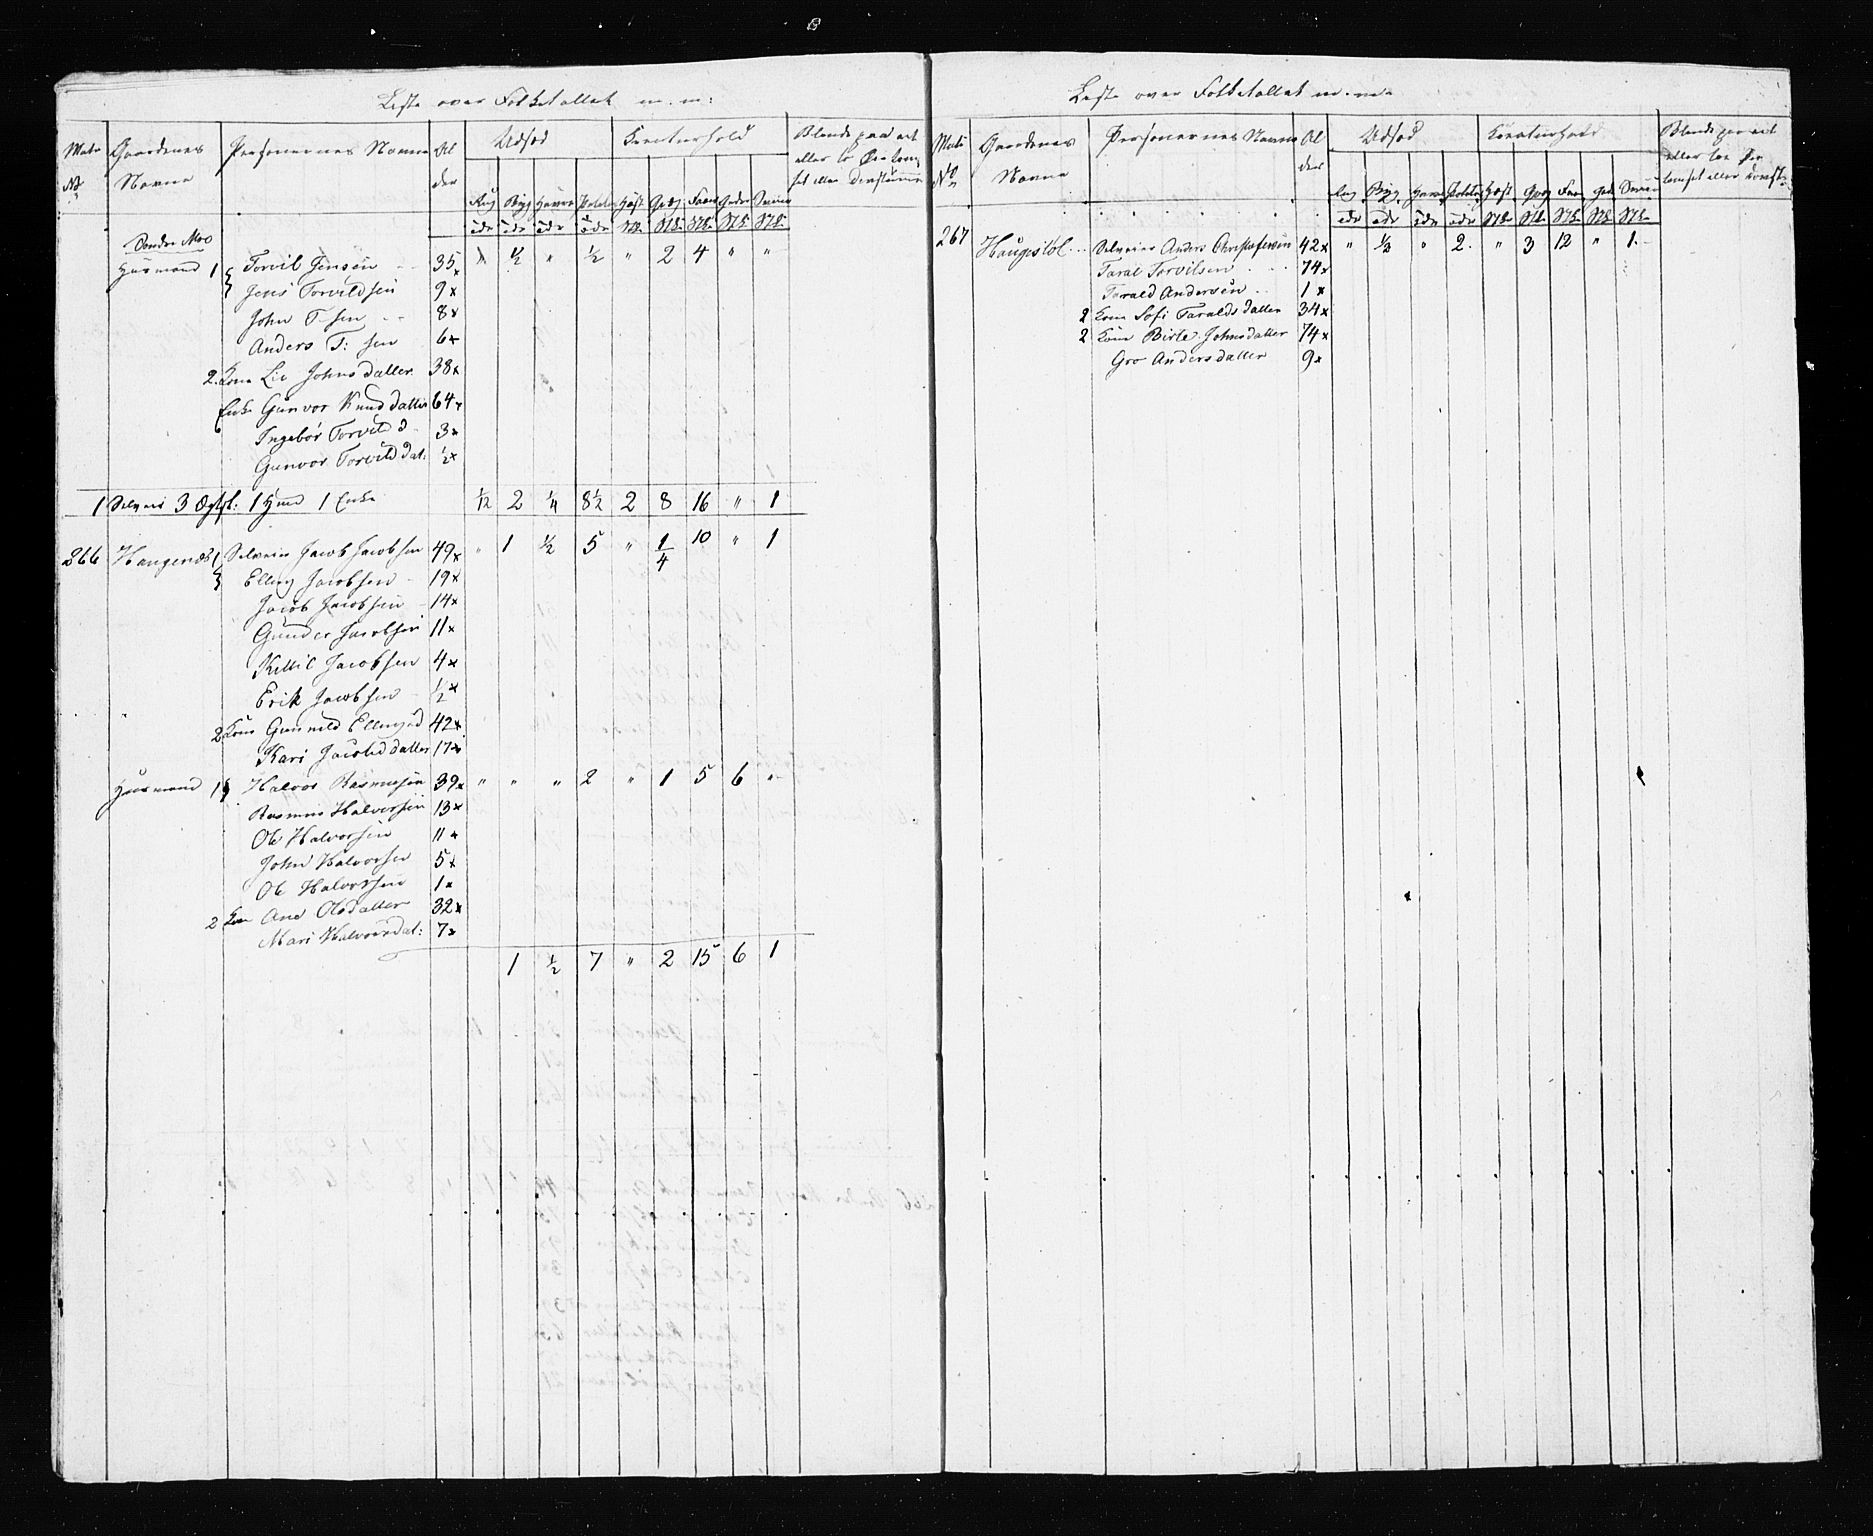 Liste over Folketallet m. m:
Matr No Gaardenes Navne Personernes Navne Alder Udsæd Kreaturhold Blinde paa eet eller to Øine
Rug Byg Havre Poteter Hest Qvæg Faar Geder Sviin
Søndre Moe
Huusmand 1 Torvil Jensen 35x " ½ " ½ " 2 4 " "
Jens Torvildsen 9x
John T-sen 8x
Anders T: sen 6x
2. Kone Liv Johnsdatter 38x
Enke Gunvor Knuddatter 64x
Ingebor Torvild d. 3x
Gunvor Torvilddat: ½x
1 Selveier 3 1 Huusm 1 Enke 1/12 2 ¼ 8½ 2 8 16 " 1
266 Haugenæs 1 Selveier Jacob Jacobsen 49x " 1 ½ 5 " 1/4 10 " 1
Elling Jacobsen 19x
Jacob Jacobsen 14x
Gunder Jacobsen 11x
Kittil Jacobsen 4x
Erik Jacobsen ½x
2 Kone Gunnild Ellingsd 42x
Kari Jacobsdatter 17x
Huusmand 1 Halvor Rasmusen 39x " " " 2 " 1 5 6 "
Rasmus Halvorsen 13x
Ole Halvorsen 11x
John Halvorsen 5x
Ole Halvorsen 1x
2 Kone Ane Olsdatter 32x
Mari Halvorsdat: 7x
1 ½ 7 " 2 15 6 1
Liste over Folketallet m. m.
Matr No Gaardenes Navne Personernes Navne Alder Udsæd Kreaturhold Blinde paa eet eller to Øine
Rug Byg Havre Poteter Hest Qvæg Faar Geder Sviin
267 Haugstøl Selveier Anders Christophersen 42x " ½ " 2. " 3 12 " 1
Taral Torvilsen 74x
Tarald Andersen 1x
2 Kone Sofi Taraldsdatter 34x
2 Kone Birte Johnsdatter 74x
Gro Andersdatter 9x